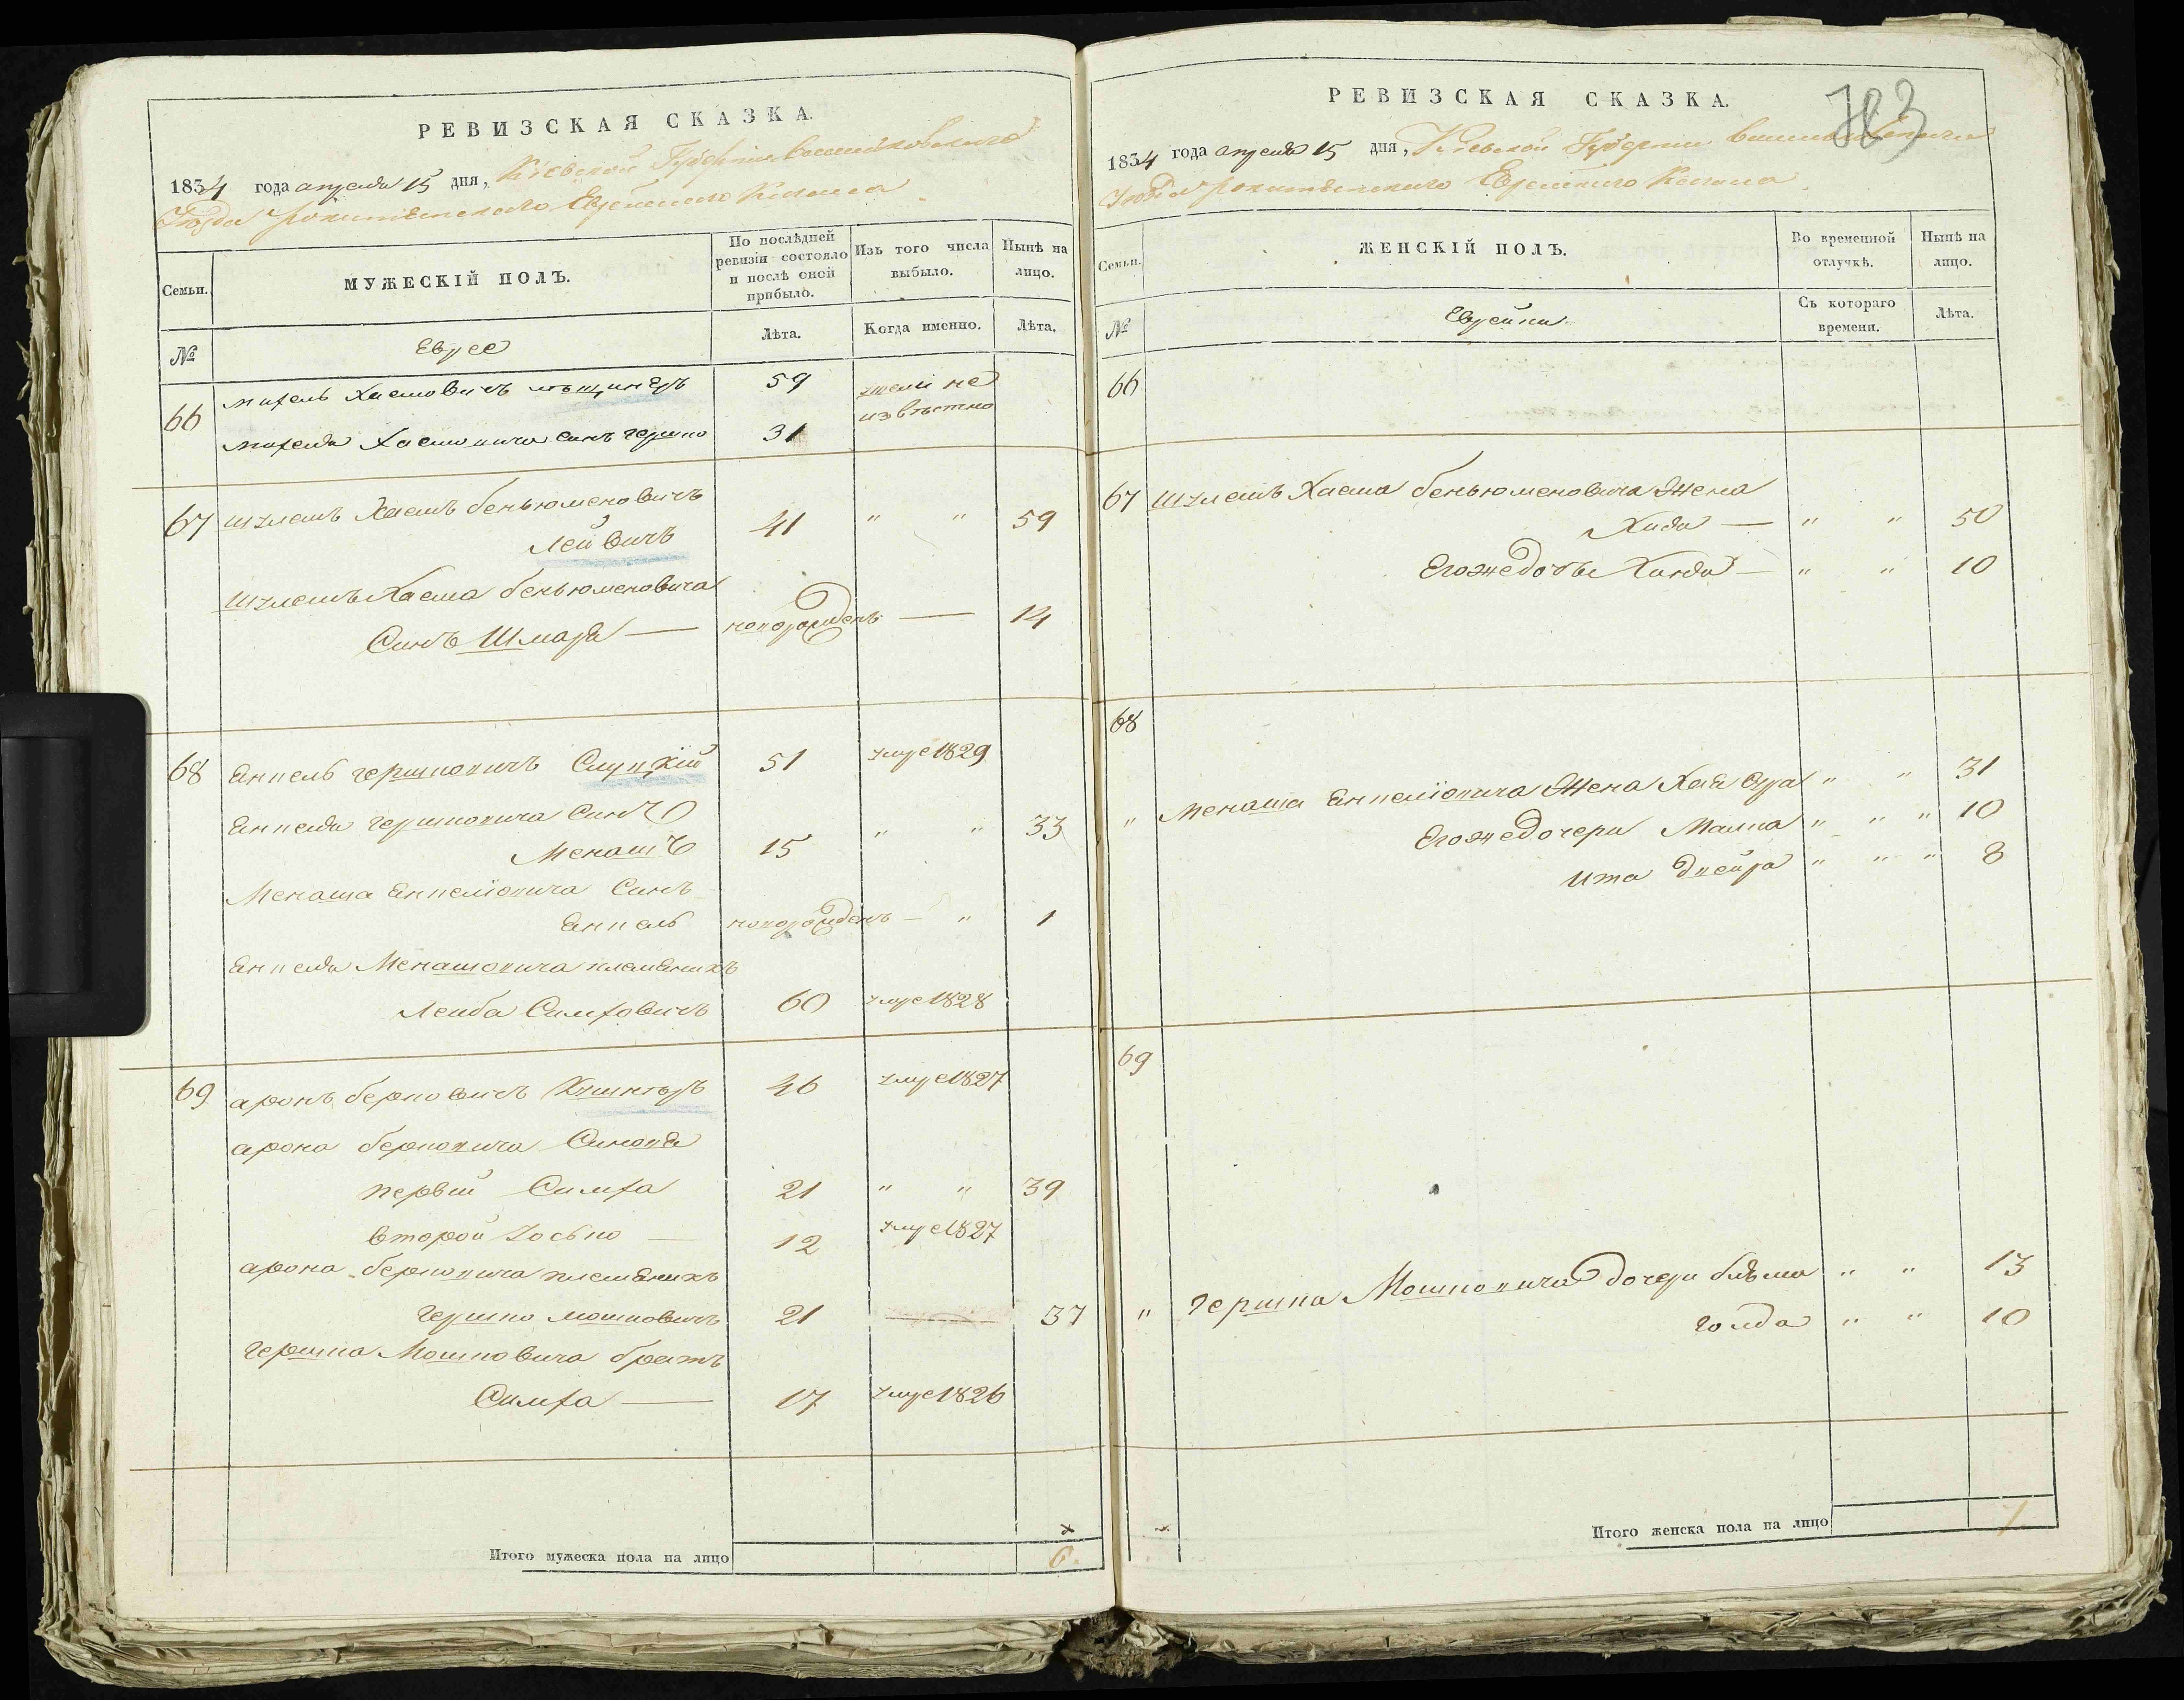 РЕВИЗСКАЯ СКАЗКА.
1834 года апреля 15 дня, Кіевской Губерніи Васильковского
Уезда рокитянского Еврейского Кагала
Семьи.
МУЖЕСКІЙ ПОЛЪ.
По послѣдней ревизіи состояло и послѣ оной прибыло.
Изъ того числа выбыло.
Нынѣ на лицо.
№
Еврее
Лѣта.
Когда именно.
Лѣта.
66 Михель Хаемовичъ 59 неизвѣстно
Михеля Хаемовича синъ Гершко 31
67 Шулемъ Хаемъ беньюменовичъ
Лейвичъ 41 " " 59
Шулемъ Хаема беньюменовича
Синъ Шмаря — новорожденъ — 14
68 Янкель Гершковичъ Слуцкій 51 умре 1829
Янкеля Гершковича Синъ
Менашъ 15 " " 33
Менаша Янкеліовича Синъ
Янкель новорожденъ — " 1
Янкеля Менашовича племяникъ
Лейба Симховичъ 60 умре 1828
69 аронъ берковичъ 46 умре 1827
арона берковича Синовя
первий Симха 21 " " 39
второй Иосько — 12 умре 1827
арона берковича племяникъ
Гершко мошковичъ 21 37
Гершка Мошковича братъ
Симха — 17 умре 1826
Итого мужеска пола на лицо 6.
РЕВИЗСКАЯ СКАЗКА.
1834 года апреля 15 дня, Кіевской Губерніи Васильковского
Уезда рокитянского Еврейского Кагала
Семьи.
ЖЕНСКІЙ ПОЛЪ.
Во временной отлучкѣ.
Нынѣ на лицо.
№
Еврейки
Съ котораго времени.
Лѣта.
66
67 Шулемъ Хаема беньюменовича Жена
— " " 50
Егожедочъ — " " 10
68
" Менаша Янкеліовича Жена Хая Сура " " 31
Егожедочери Малка " " " 10
Ита Двейра " " " 8
69
" Гершка Мошковича дочери блюма " " 13
голда " " 10
Итого женска пола на лицо 7